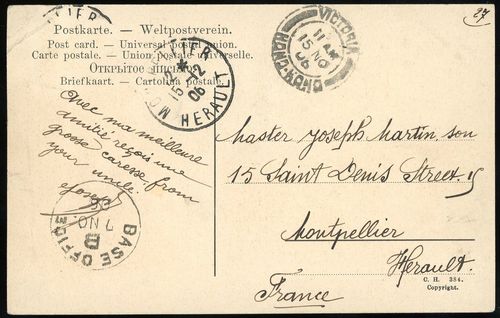 27
LLIER
Postkarte. — Weltpostverein.
Post card. — Universal postal union.
Carte postale. — Union postale universelle.
Открытое письмо.
Briefkaart. — Cartolina postale.
MONTPELLIER
15 -12
06
HERAULT
VICTORIA
11 AM
15 NO
06
HONG-KONG
Avec ma meilleure
amitié reçois une
grosse caresse from
your uncle.
Joseph
BASE OFFICE
B
7 NO
06
Master Joseph Martin son
15 Saint Denis Street, 15
Montpellier
Herault.
France
C. H. 384.
Copyright.